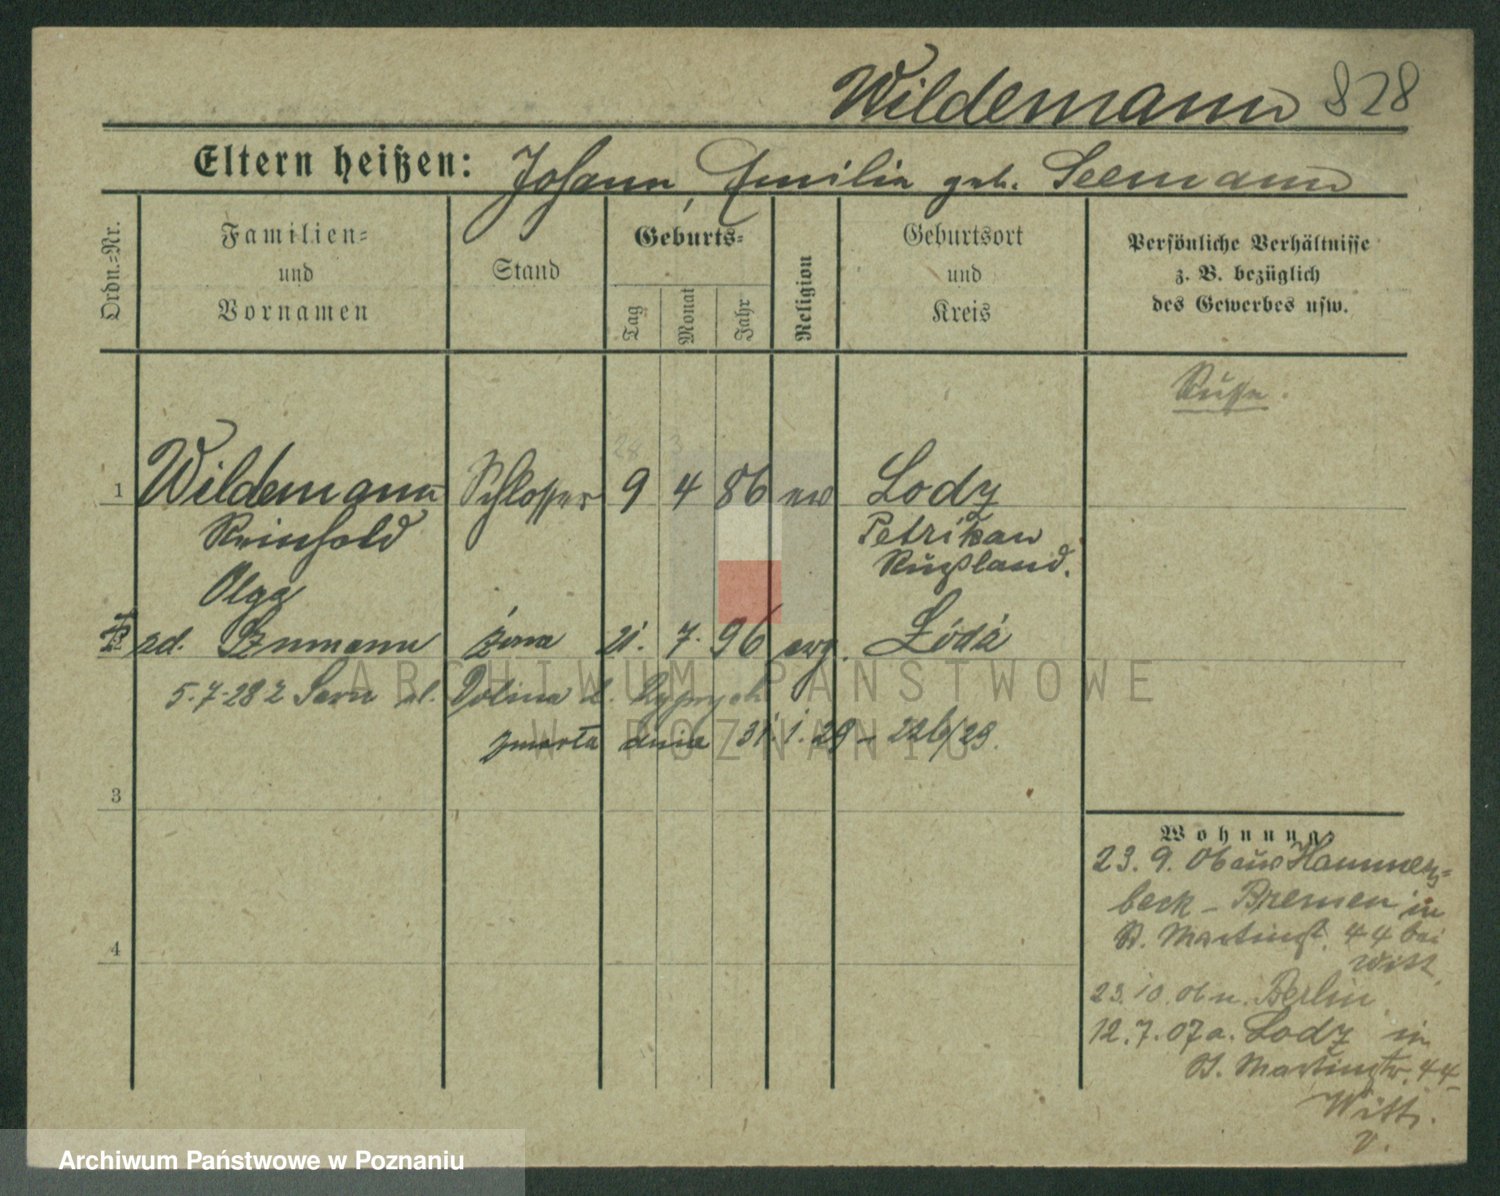 Wildemann 828
Eltern heißen: Johann, Emilia geb. Seemann
Ordn.-Nr.
Familien- und Vornamen
Stand
Geburts-
Tag
Monat
Jahr
Religion
Geburtsort und Kreis
Persönliche Verhältnisse z. B. bezüglich des Gewerbes usw.
Russe.
28 3
1 Wildemann Schlosser 9 4 86 ev Lodz
Reinhold Petrikau
Rußland.
Olga
zd. żona 21. 7. 96 ewg. Łódź
5.7.28 z ul. Dolina
zmarła dnia 31.1.29 – 226/29.
3
4
Wohnung
23. 9. 06 aus Hammers-
beck – Bremen in
St. Martinst. 44 bei
Witt
23.10.06 n. Berlin
12.7.07 a. Lodz in
St. Martinstr. 44
Witt.
v.
ARCHIWUM PAŃSTWOWE
W POZNANIU
Archiwum Państwowe w Poznaniu